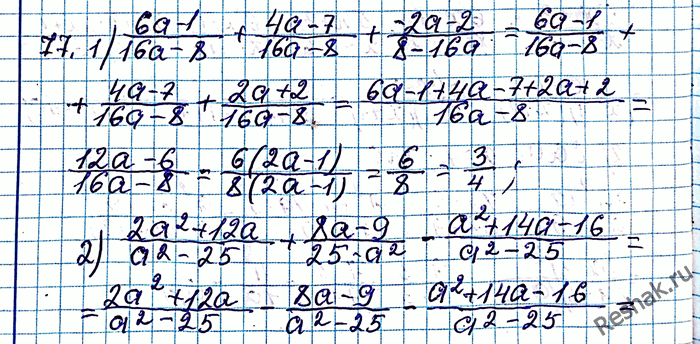 77. 1) (6a-1)/(16a-8) + (4a-7)/(16a-8) + (-2a-2)/(8-16a) = (6a-1)/(16a-8) +
+ (4a-7)/(16a-8) + (2a+2)/(16a-8) = (6a-1+4a-7+2a+2)/(16a-8) =
(12a-6)/(16a-8) = 6(2a-1)/8(2a-1) = 6/8 = 3/4 ;
2) (2a²+12a)/(a²-25) + (8a-9)/(25-a²) - (a²+14a-16)/(a²-25) =
= (2a²+12a)/(a²-25) - (8a-9)/(a²-25) - (a²+14a-16)/(a²-25) =
Reshak.ru